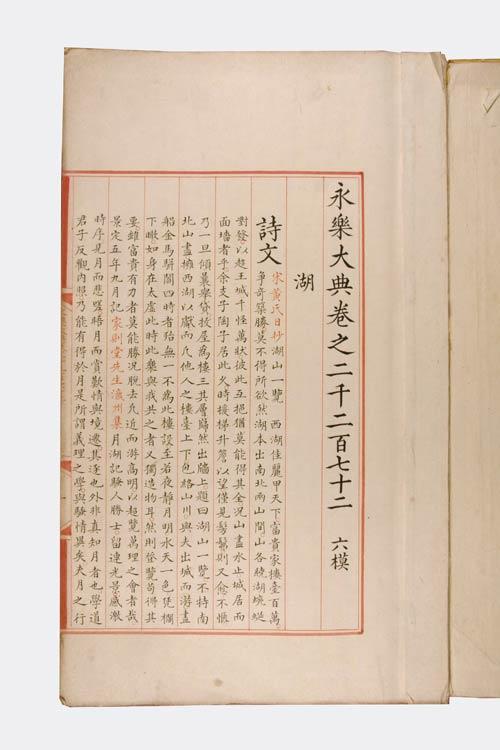 永樂大典卷之二千二百七十二 六模
湖
詩文 宋黃氏日抄湖山一覽 西湖佳麗甲天下富貴家樓臺百萬
爭奇築勝莫不得所欲然湖本出南北兩山間山各繞湖蜿蜒
對發以趨王城千怪萬狀彼此互挹猶莫能得其全況山盡水止城居而
面墻者乎余支子陶子居此久時援梯升簷以望僅見髣髴則又愈不愜
乃一旦傾囊舉貸投屋為樓三其層巋然出牖上題曰湖山一覽不特南
北山盡擁西湖以獻而凡他人之樓臺上下包絡山川與夫出城而游畫
船金馬駢闐四時者殆無一不為此樓設至若夜靜月明水天一色凭欄
下瞰如身在太虛此時此樂與我共之者又獨造物耳然則登覽苟得其
要雖富貴有力者莫能勝況脫去凡近而游高明以超覽萬理之會者哉
景定五年九月記家則堂先生瀛州集月湖記騷人勝士留連光景感激
時序見月而悲晤月而賞歡情與境遷其逐也外非真知月者也學道
君子反觀內照乃能有得於月是所謂義理之學與騷情異矣夫月之行